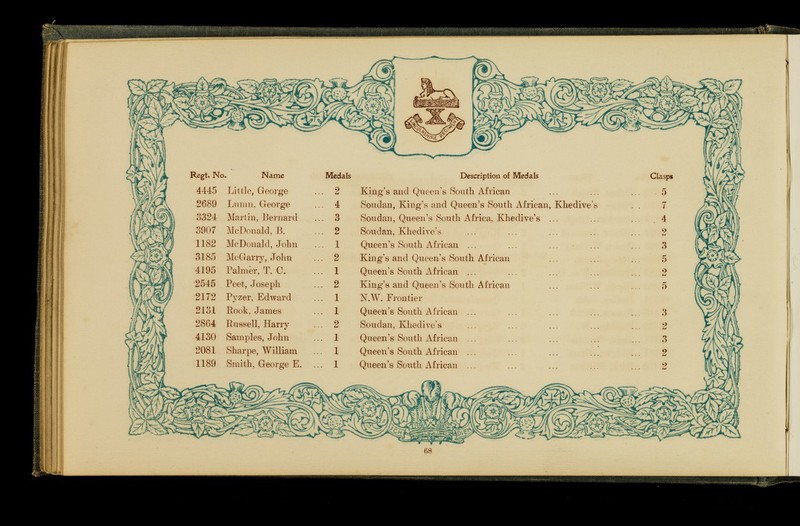 Regt. No. Name Medals Description of Medals Clasps
4445 Little, George ... 2 King's and Queen's South African ... ... ... 5
2689 Lunun, George ... 4 Soudan, King's and Queen's South African, Khedive's ... 7
3324 Martin, Bernard ... 3 Soudan, Queen's South Africa, Khedive's ... ... ... 4
3907 McDonald, B. ... 2 Soudan, Khedive's ... ... ... ... ... 2
1182 McDonald, John ... 1 Queen's South African ... ... ... ... ... 3
3185 McGarry, John ... 2 King's and Queen's South African ... ... ... 5
4195 Palmer, T. C. ... 1 Queen's South African ... ... ... ... ... 2
2545 Peet, Joseph ... 2 King's and Queen's South African ... ... ... 5
2172 Pyzer, Edward ... 1 N.W. Frontier
2131 Rook, James ... 1 Queen's South African ... ... ... ... ... 3
2864 Russell, Harry ... 2 Soudan, Khedive's ... ... ... ... ... 2
4130 Samples, John ... 1 Queen's South African ... ... ... ... ... 3
2081 Sharpe, William ... 1 Queen's South African ... ... ... ... ... 2
1189 Smith, George E. ... 1 Queen's South African ... ... ... ... ... 2
68